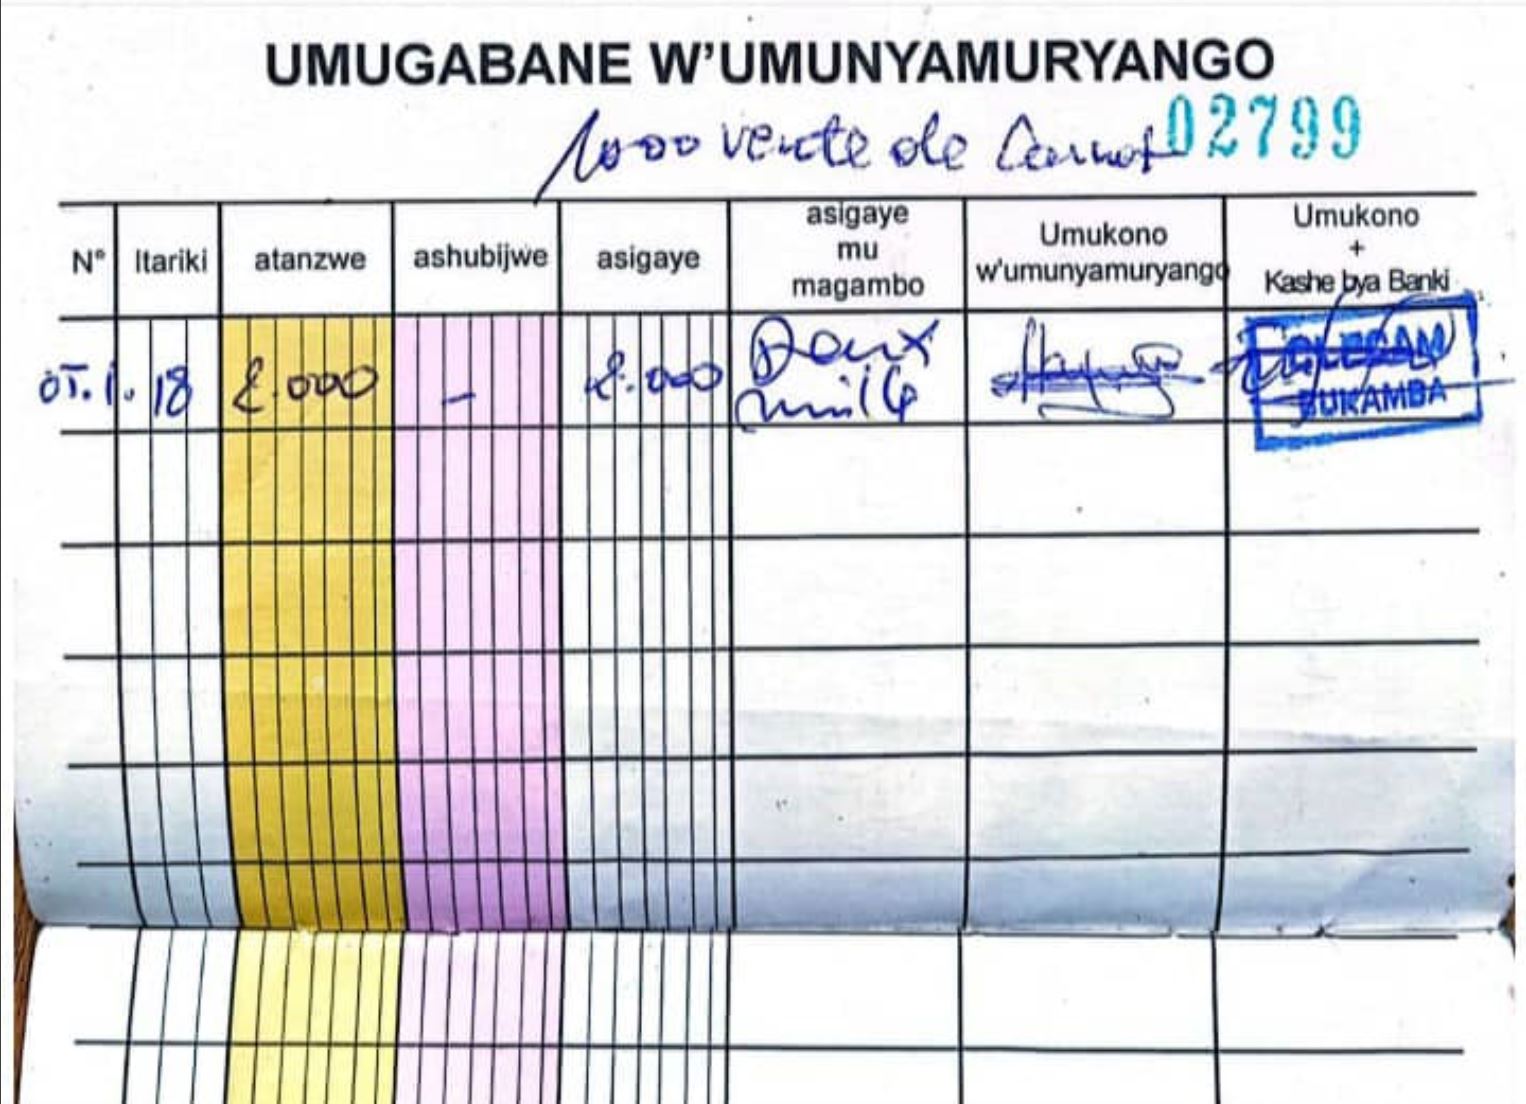 UMUGABANE W'UMUNYAMURYANGO
1000 vente de Carnet 02799
N° Itariki atanzwe ashubijwe asigaye asigaye mu magambo Umukono w'umunyamuryango Umukono + Kashe bya Banki
05.1.18 2.000 - 2.000 Deux mille
BUKAMBA